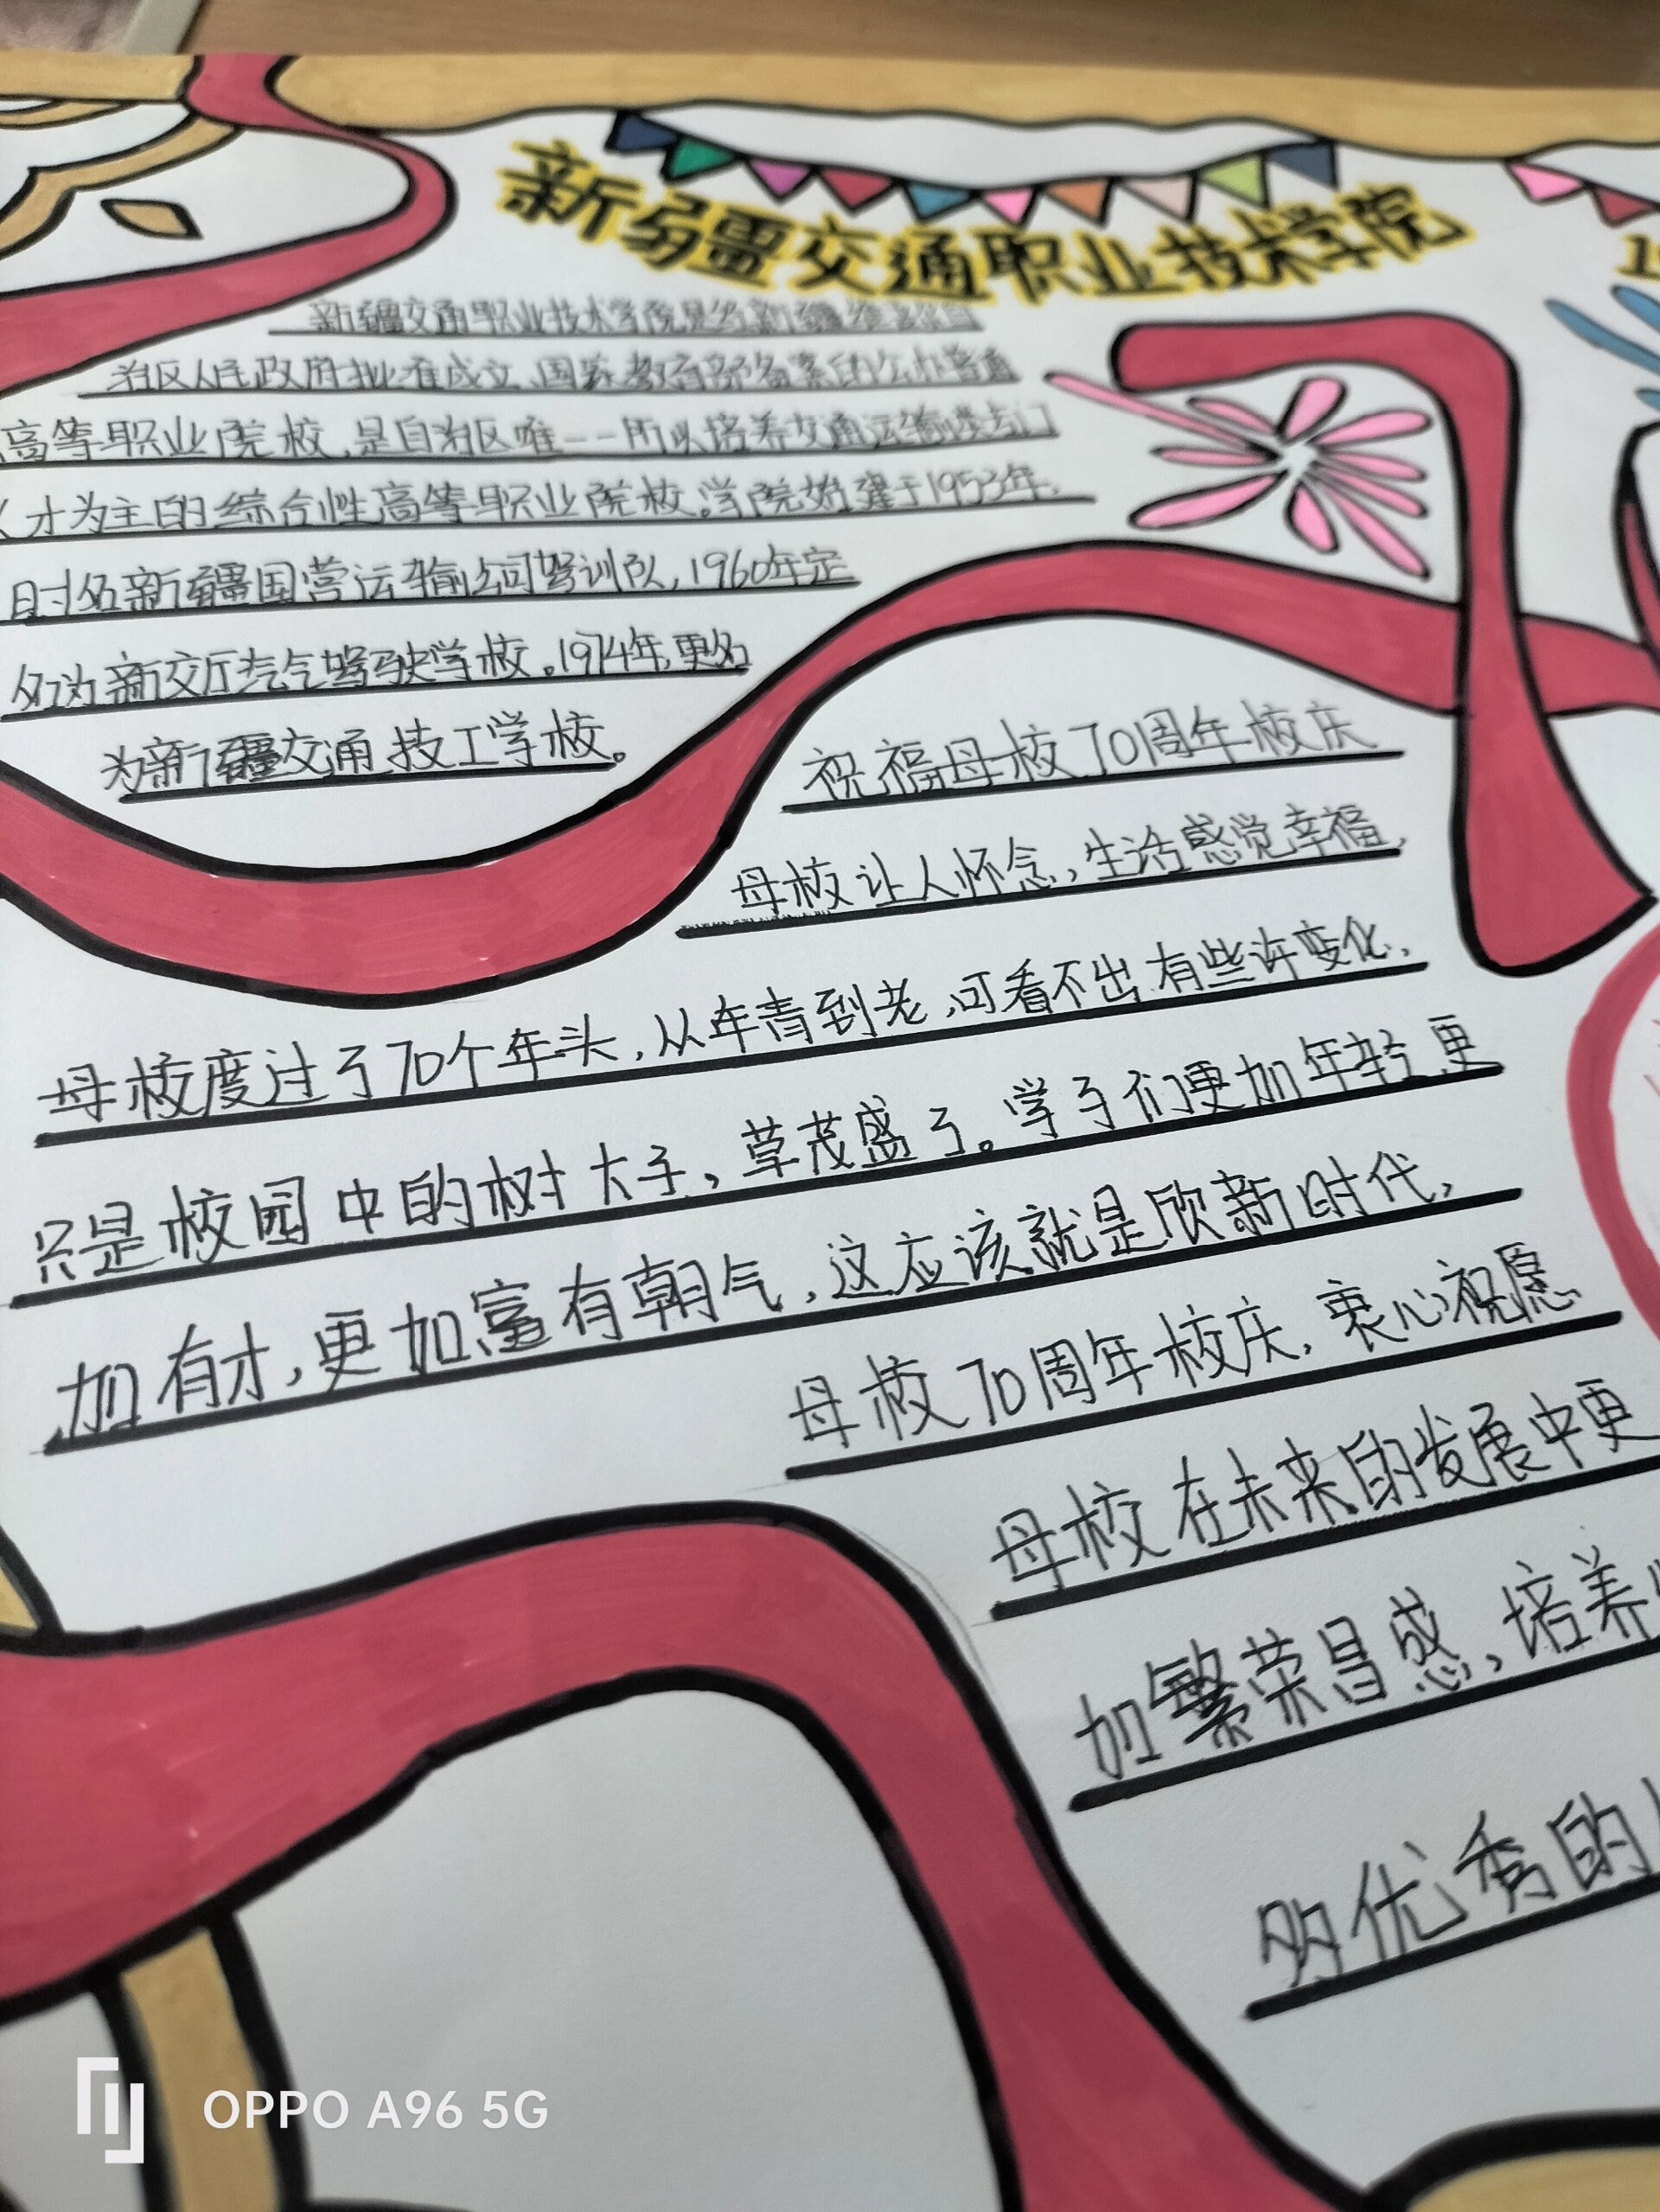 新疆交通职业技术学院
新疆交通职业技术学院是经新疆维吾尔自
治区人民政府批准成立、国家教育部备案的公办普通
高等职业院校,是自治区唯一一所以培养交通运输类专门
人才为主的综合性高等职业院校。学院始建于1953年,
时名新疆国营运输公司驾训队,1960年定
名为新交厅汽车驾驶学校。1974年,更名
为新疆交通技工学校。
祝福母校70周年校庆
母校让人怀念,生活感觉幸福,
母校度过了70个年头,从年青到老,可看不出有些许变化,
只是校园中的树大了,草茂盛了。学子们更加年轻,更
加有才,更加富有朝气,这应该就是欣新时代,
母校70周年校庆,衷心祝愿
母校在未来的发展中更
加繁荣昌盛,培养
多优秀的
OPPO A96 5G